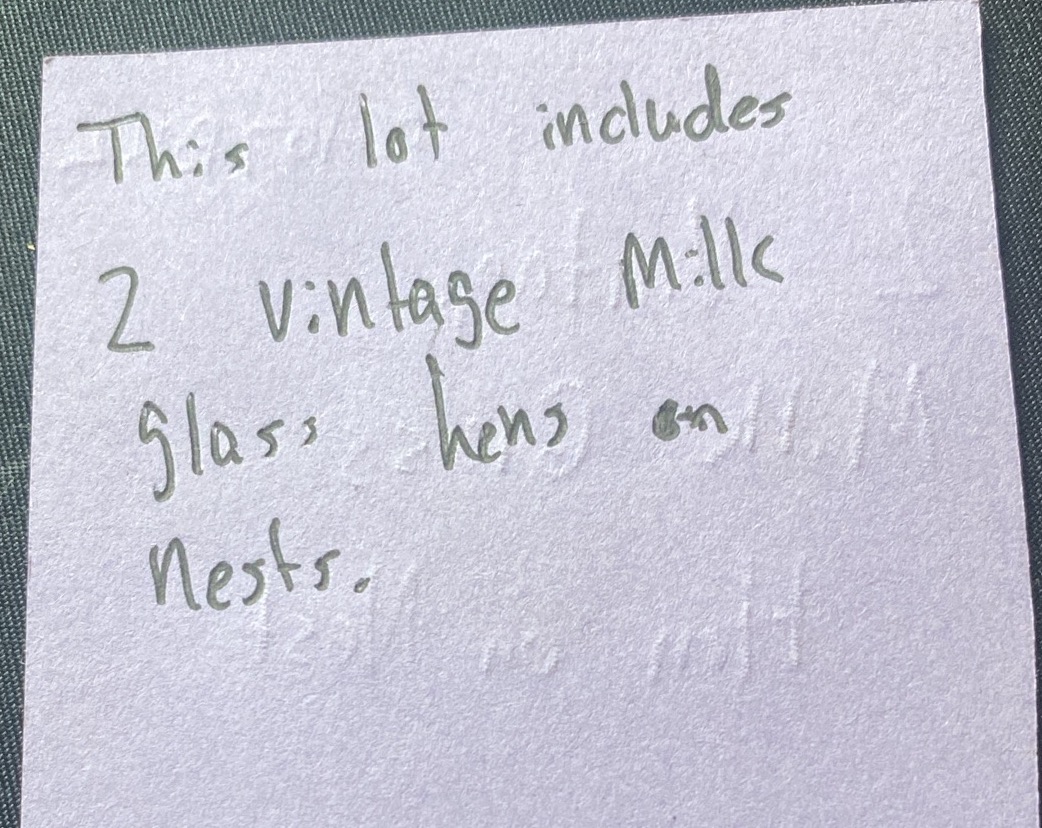 This lot includes
2 vintage Milk
glass hens on
nests.